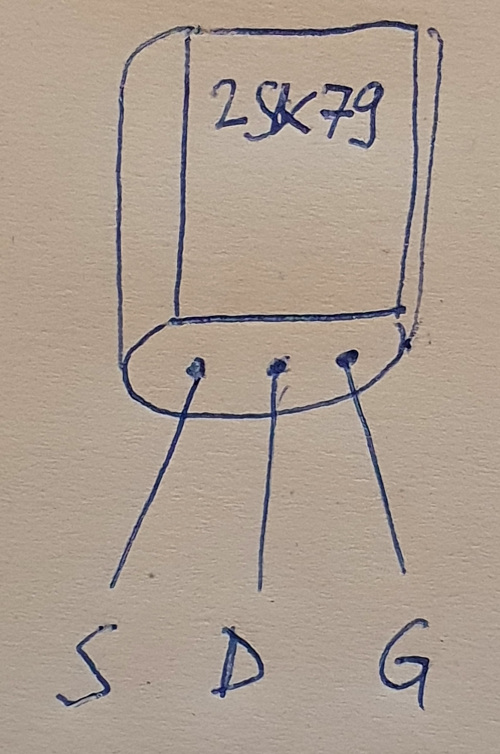 2SK79
S D G